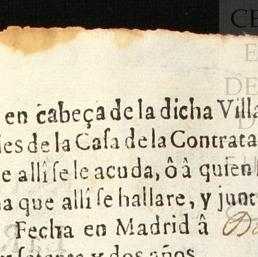 en cabeça de la dicha Villa
les de la Casa de la Contrata
e alli se le acuda, ô à quien
na que alli se hallare, y junt
Fecha en Madrid â
setenta y dos años